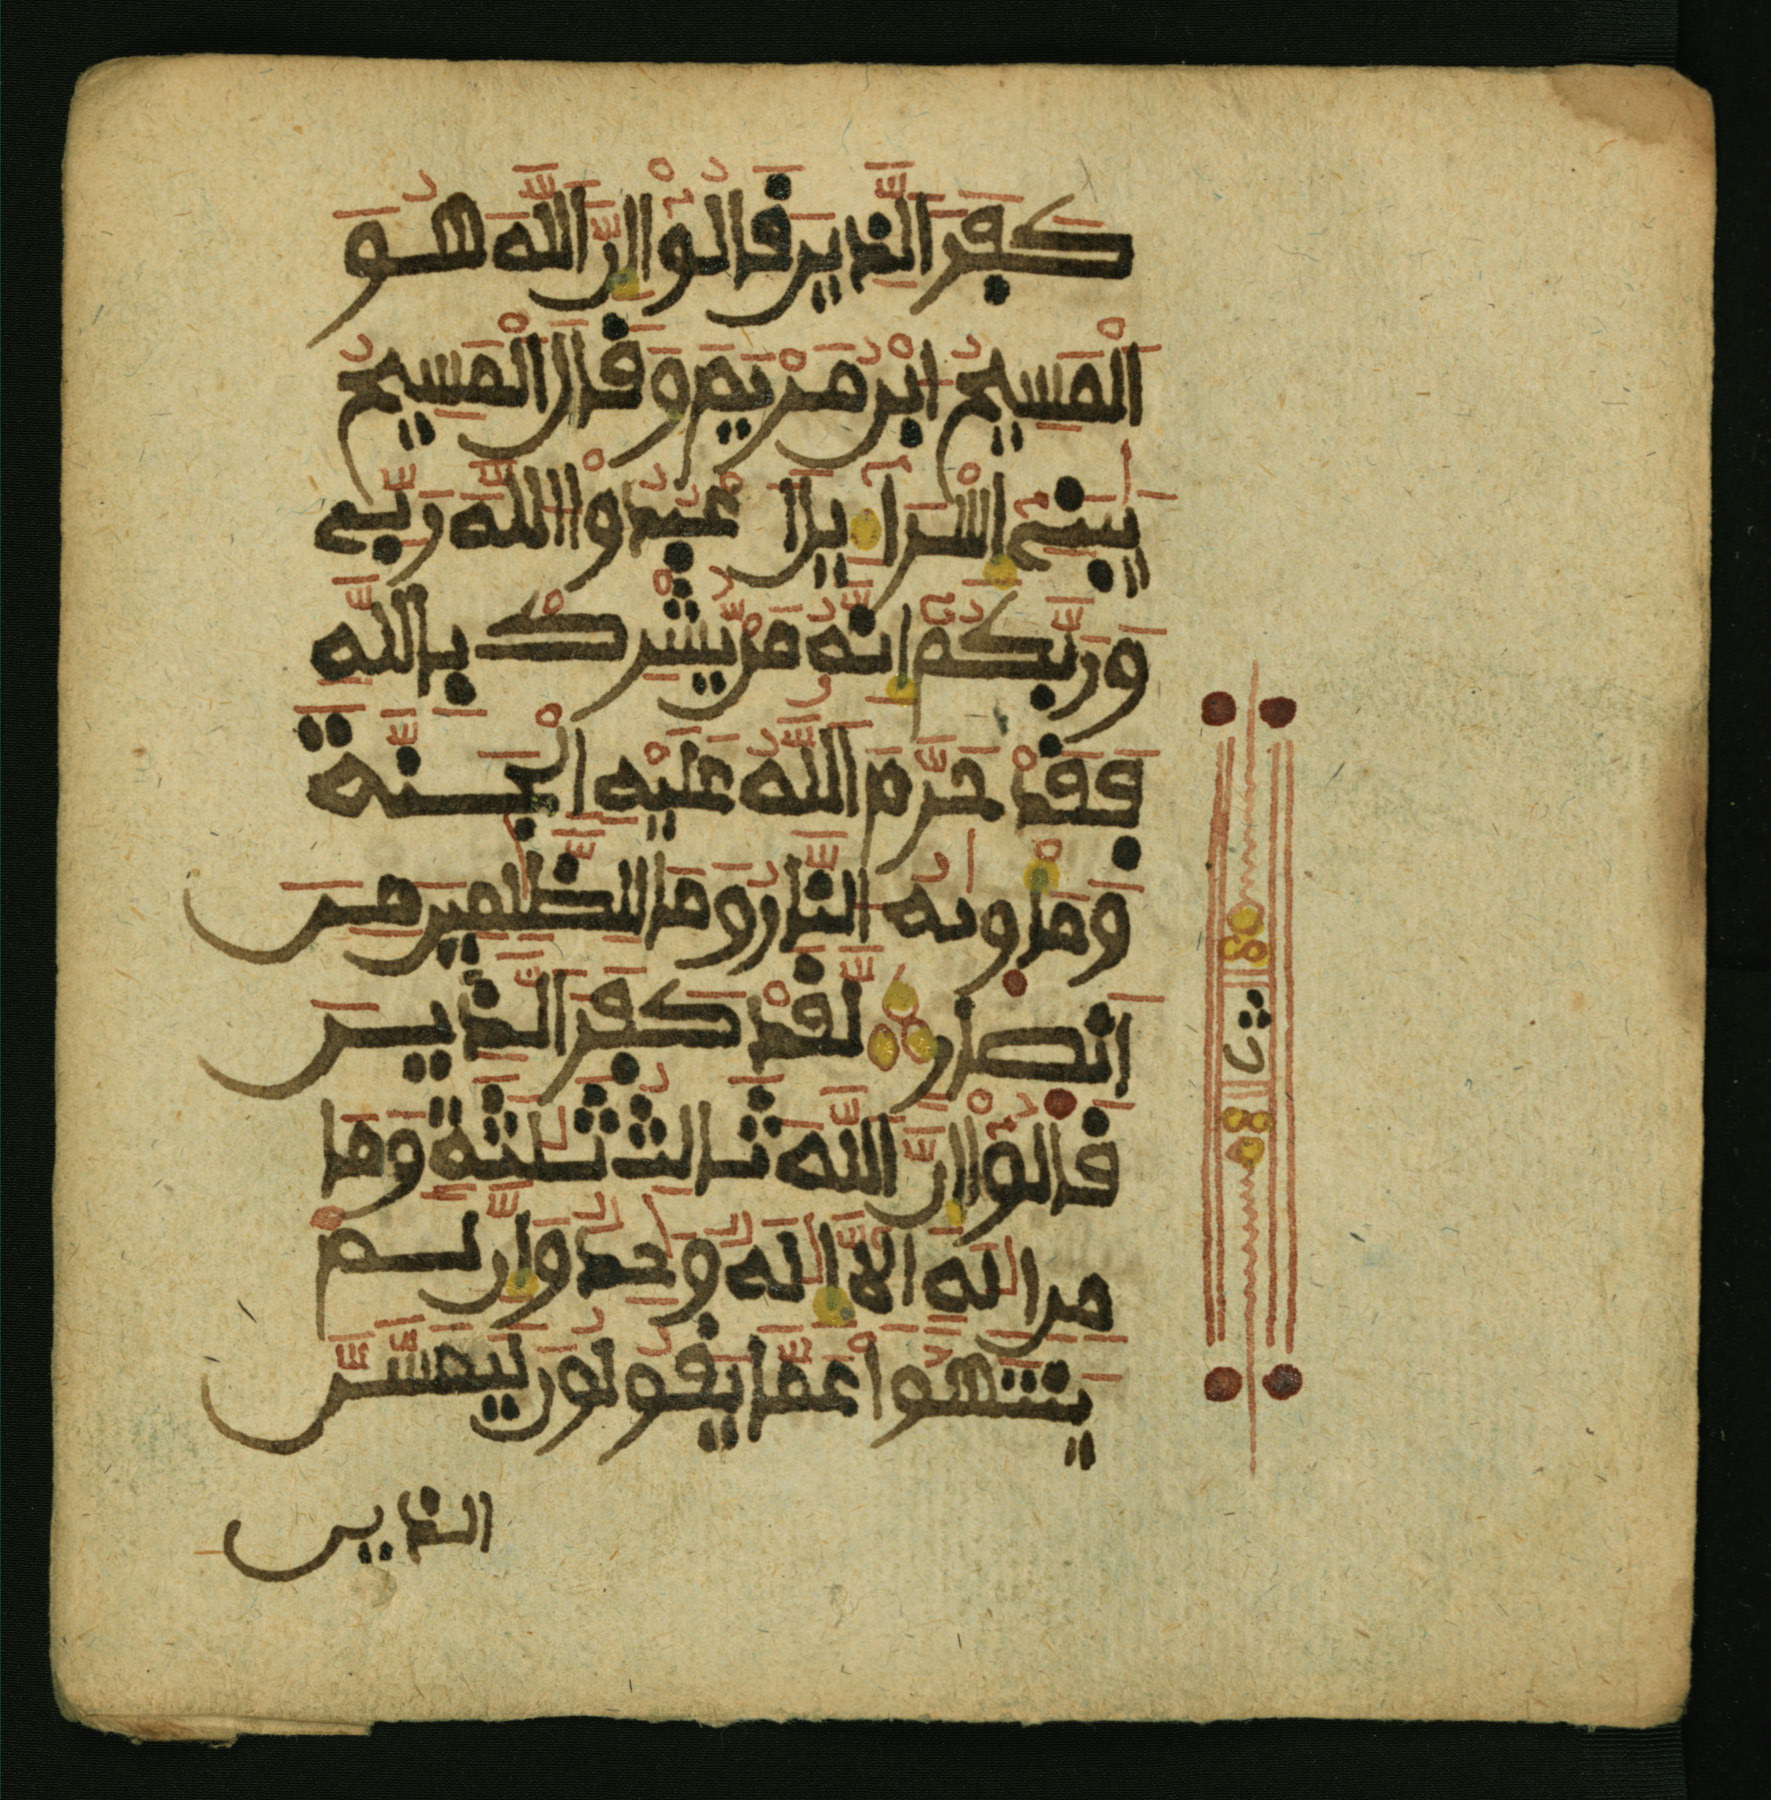 كَفَرَ الَّذِينَ قَالُوْا إِنَّ اللَّهَ هُوَ
الْمَسِيحُ ابْنُ مَرْيَمَ وَقَالَ الْمَسِيحُ
يَبَنِي إِسْرَآءِيلَ اعْبُدُوْا اللَّهَ رَبِّي
وَرَبَّكُمْ إِنَّهُ مَنْ يُّشْرِكْ بِاللَّهِ
فَقَدْ حَرَّمَ اللَّهُ عَلَيْهِ الْجَنَّةَ
وَمَأْوَىهُ النَّارُ وَمَا لِلظَّلِمِينَ مِنَ
انصَارٍ لَّقَدْ كَفَرَ الَّذِينَ
قَالُوْا إِنَّ اللَّهَ ثَالِثُ ثَلَثَةٍ وَمَا
مِنِ الَهٍ الَّا إِلَهٌ وَحِدٌ وَإِن لَّمْ
يَنتَهُوْا عَمَّا يَقُولُونَ لَيَمَسَّنَّ
الذين
ث